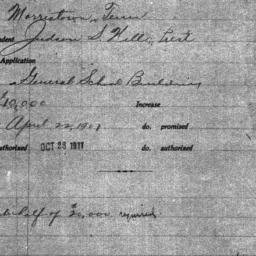 Morristown, Tenn
dent Judson S. Hill, Prest
Application
General School Building
10,000 Increase
April 22, 1907 do. promised
uthorized OCT 28 1911 do. authorized
behalf of $20,000 required